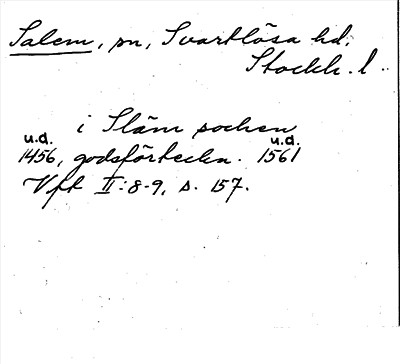 Salem, sn, Svartlösa hd,
Stockh. l.
i Släm sochen
u.d. u.d.
1456, godsförteckn. 1561
Vft II:8-9, s. 157.